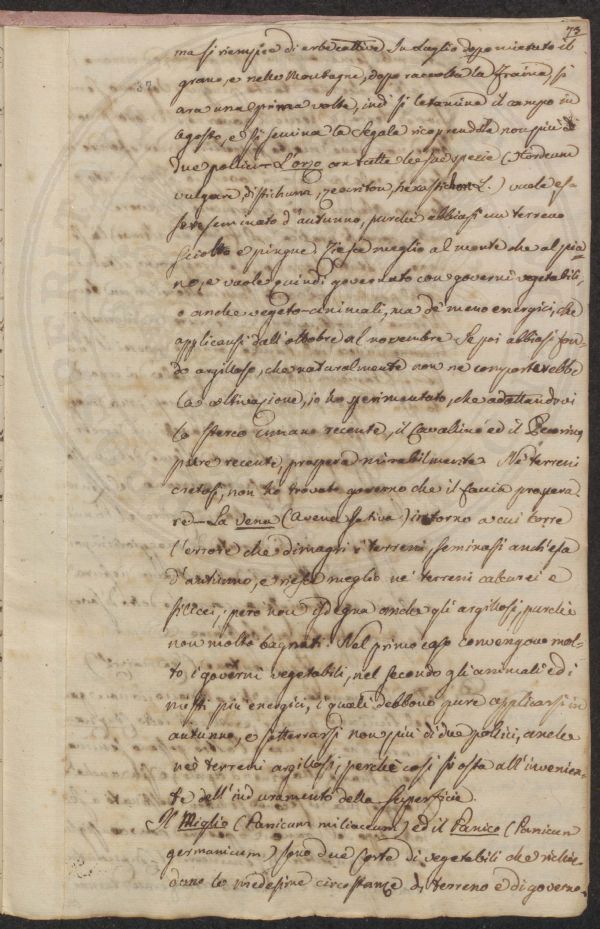 73
ma si riempice di erbe cattive. In Luglio dopo mietuto il
grano, e nelle Montagne, dopo raccolta la Fraina, si
ara una prima volta, indi si letamina il campo in
Agosto, e si semina la Segale ricoprendola non più di
due pollici = L'orzo con tutte le sue specie (Hordeum
vulgare, distichum, zeocriton, hexastichon L.) vuole es=
sere seminato d'autunno, purchè abbiasi un terreno
sciolto e pingue. Riesce meglio al monte che al pia=
no, e vuole quindi governato con governi vegetabili,
o anche vegeto-animali, ma de' meno energici, che
applicansi dall'ottobre al novembre. Se poi abbiasi fon=
do argilloso, che naturalmente non ne comporterebbe
la coltivazione, io ho sperimentato, che adattandovi
lo sterco umano recente, il Cavallino ed il Pecorino
pure recente, prospera mirabilmente. Ne' terreni
cretosi, non ho trovato governo che il faccia prospera=
re = La Vena (Avena sativa) intorno a cui corre
l'errore che dimagri i terreni, seminasi anch'essa
d'autunno, e riesce meglio ne' terreni calcarei e
silicei; però non isdegna anche gli argillosi, purchè
non molto bagnati. Nel primo caso convengono mol=
to i governi vegetabili, nel secondo gli animali ed i
misti più energici, i quali debbono pure applicarsi in
autunno, e sotterrarsi non più di due pollici, anche
nei terreni argillosi, perchè così si osta all'invenien=
te dell'induramento della Superficie.
Il Miglio (Panicum miliaceum) ed il Panico (Panicum
germanicum) sono due sorte di vegetabili che richie=
dono le medesime circostanze di terreno e di governo.